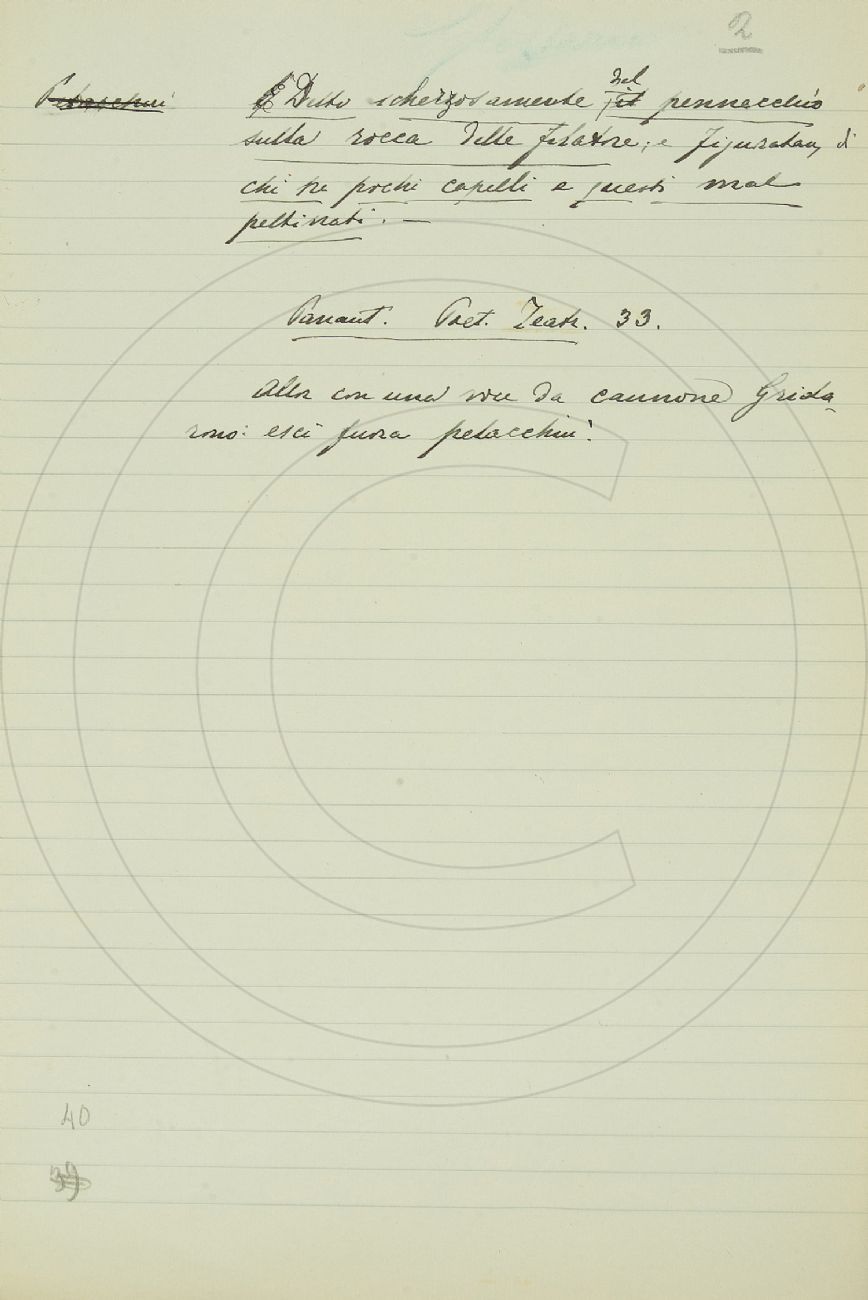 2
Petacchini È Detto scherzosamente, del il pennacchio
sulla rocca delle filatore; e figuratam, di
chi ha pochi capelli e questi mal
pettinati. —
Panant. Poet. Teatr. 33.
Allor con una voce da cannone Grida-
rono: esci fuora petacchin'.
40
39